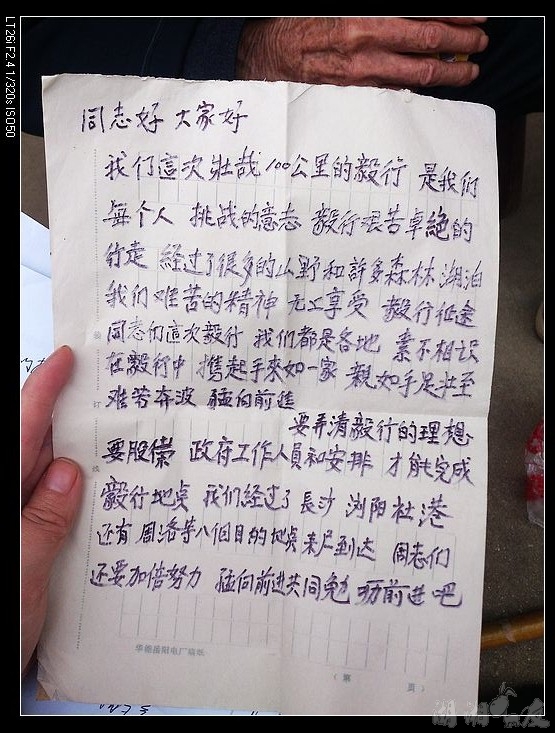 LT26i F2.4 1/320s ISO50
同志好 大家好
我们這次壮哉100公里的毅行 是我们
每个人 挑战的意志 毅行艰苦卓絶的
行走 经过了很多的山野和許多森林湖泊
我们难苦的精神 无上享受 毅行征途
同志们這次毅行 我们都是各地 素不相识
在毅行中 携起手來如一家 親如手足壮至
难苦奔波 猛向前進
要弄清毅行的理想
要服 政府工作人員和安排 才能完成
毅行地点 我们经过了長沙 浏阳社港
还有周洛等八個目的地点 到达 同志们
还要加倍努力 猛向前进共同勉 励前进吧
装
订
线
华能岳阳电厂稿纸
(第 页)
湖湘 友